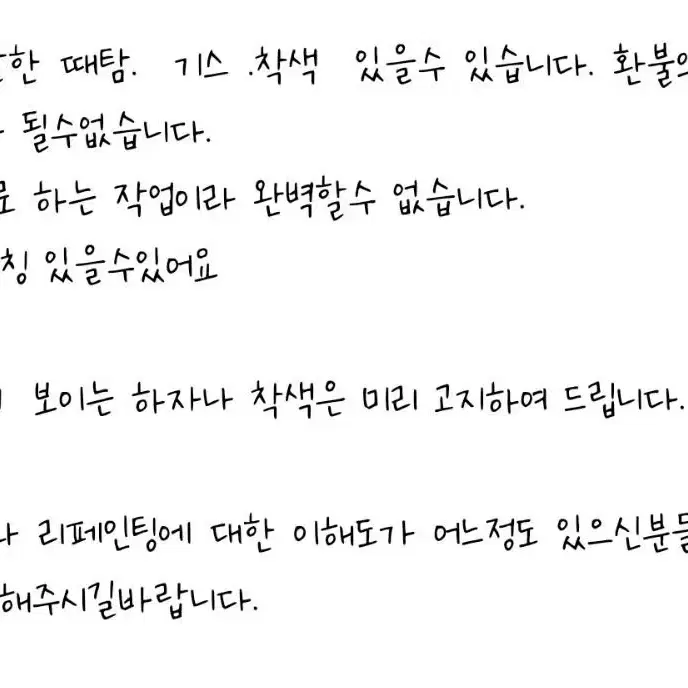 한 때탐. 기스 .착색 있을수 있습니다. 환불의
될수없습니다.
하는 작업이라 완벽할수 없습니다.
칭 있을수있어요
보이는 하자나 착색은 미리 고지하여 드립니다.
리페인팅에 대한 이해도가 어느정도 있으신분들
해주시길바랍니다.